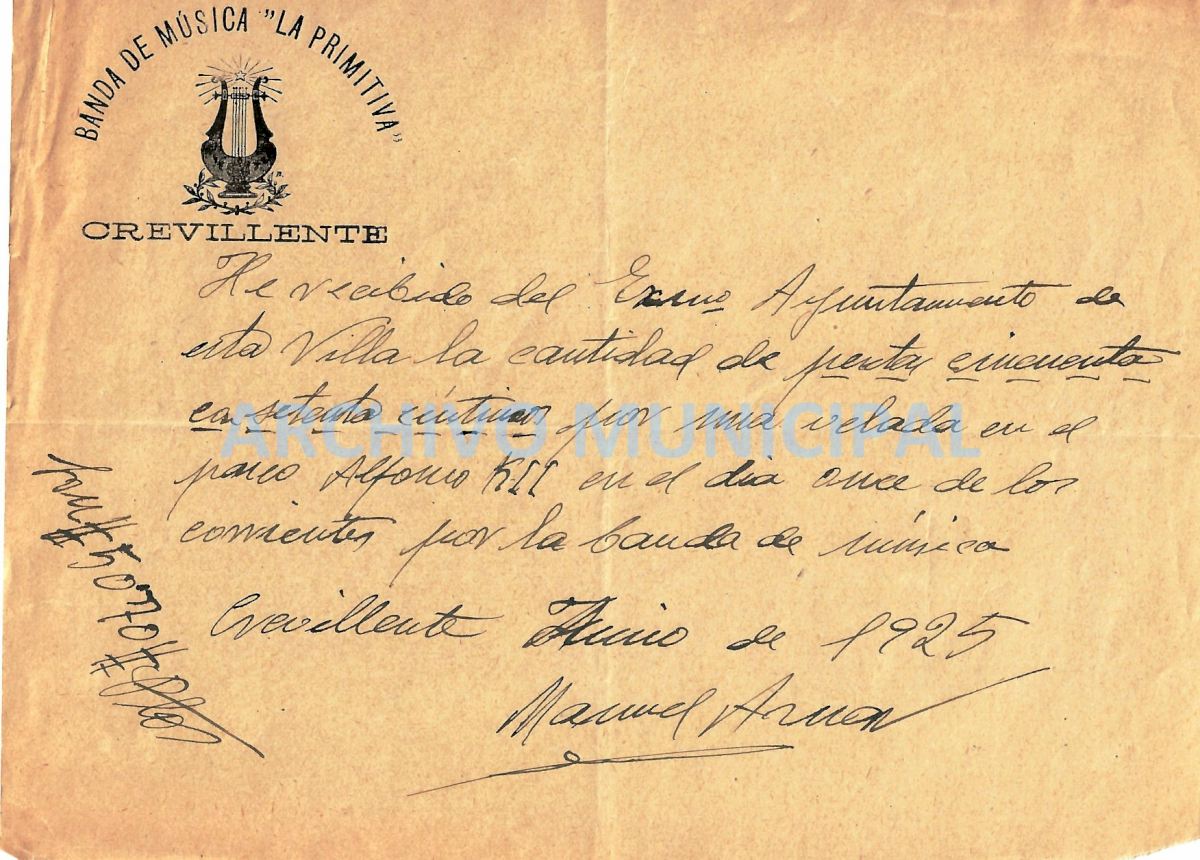 BANDA DE MÚSICA "LA PRIMITIVA"
CREVILLENTE
He recibido del Exmo Ayuntamiento de
esta Villa la cantidad de pesetas cincuenta
con setenta céntimos por una velada en el
paseo Alfonso XII en el dia once de los
corrientes por la banda de música
Crevillente Junio de 1925
Manuel Aznar
ARCHIVO MUNICIPAL
50,70